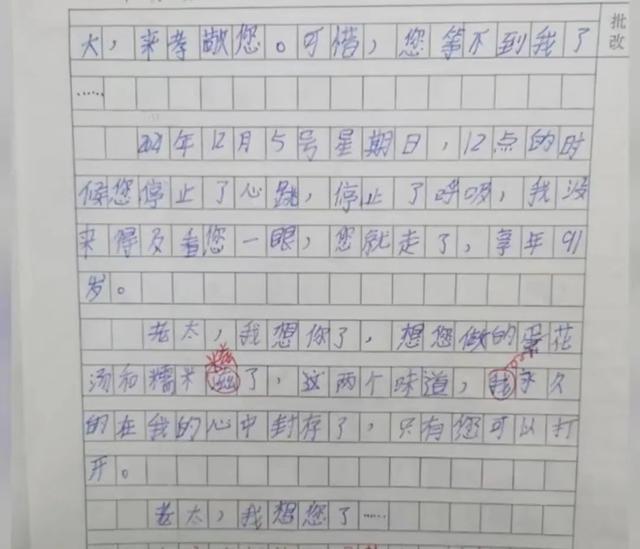 批改
大，来孝敬您。可惜，您等不到我了
……
2021年12月5号星期日，12点的时
候您停止了心跳，停止了呼吸，我没
来得及看您一眼，您就走了，享年91
岁。
老太，我想你了，想您做的蛋花
汤和糯米了，这两个味道，我永久
的在我的心中封存了，只有您可以打
开。
老太，我想您了……